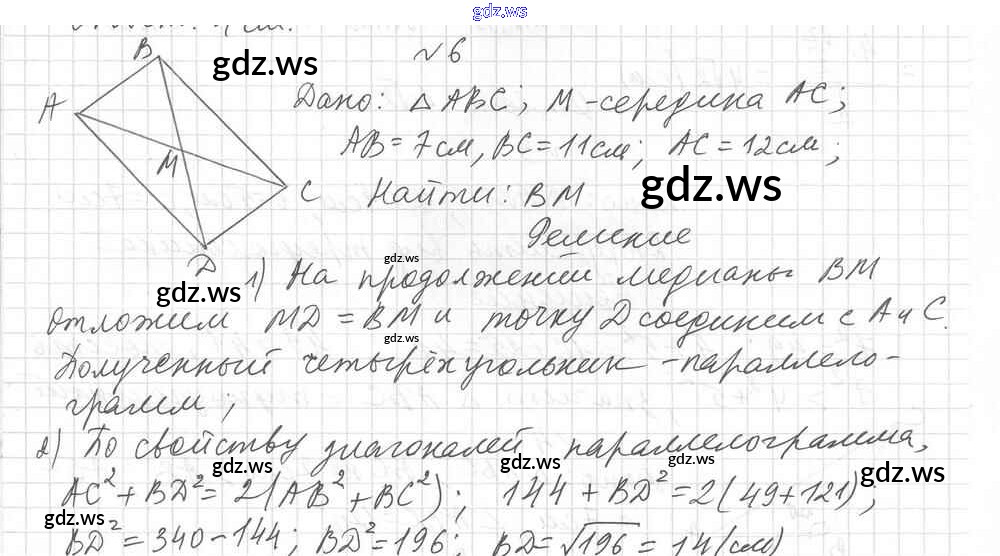 gdz.ws
№6
Дано: △ABC; M-середина AC;
AB=7см, BC=11см; AC=12см;
Найти: BM
Решение
1) На продолжении медианы BM
отложим MD=BM и точку D соединим с A и C.
Полученный четырёхугольник -параллело-
грамм;
2) По свойству диагоналей параллелограмма,
AC²+BD²=2(AB²+BC²); 144+BD²=2(49+121);
BD²=340-144; BD²=196; BD=√196=14(см)
B
A
M
C
D
gdz.ws
gdz.ws
gdz.ws
gdz.ws
gdz.ws
gdz.ws
gdz.ws
gdz.ws
gdz.ws
gdz.ws